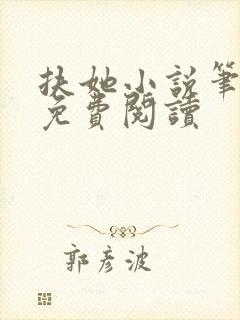 扶她小說筆
免費閱讀
郭彦波